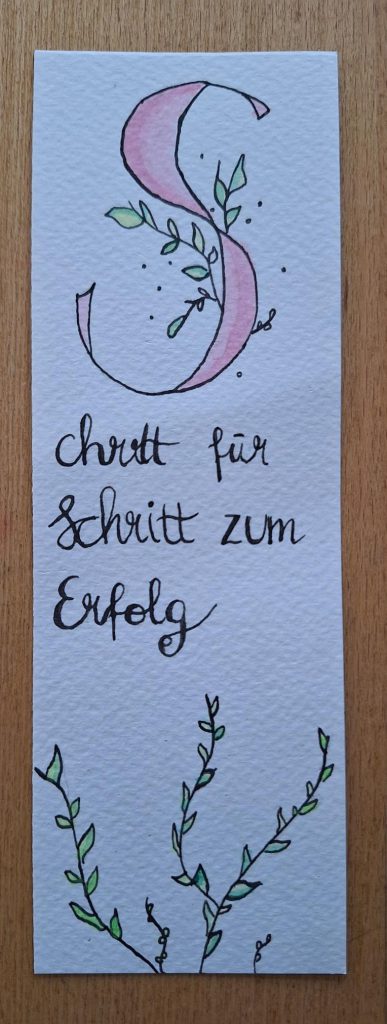 S
chritt für
Schritt zum
Erfolg